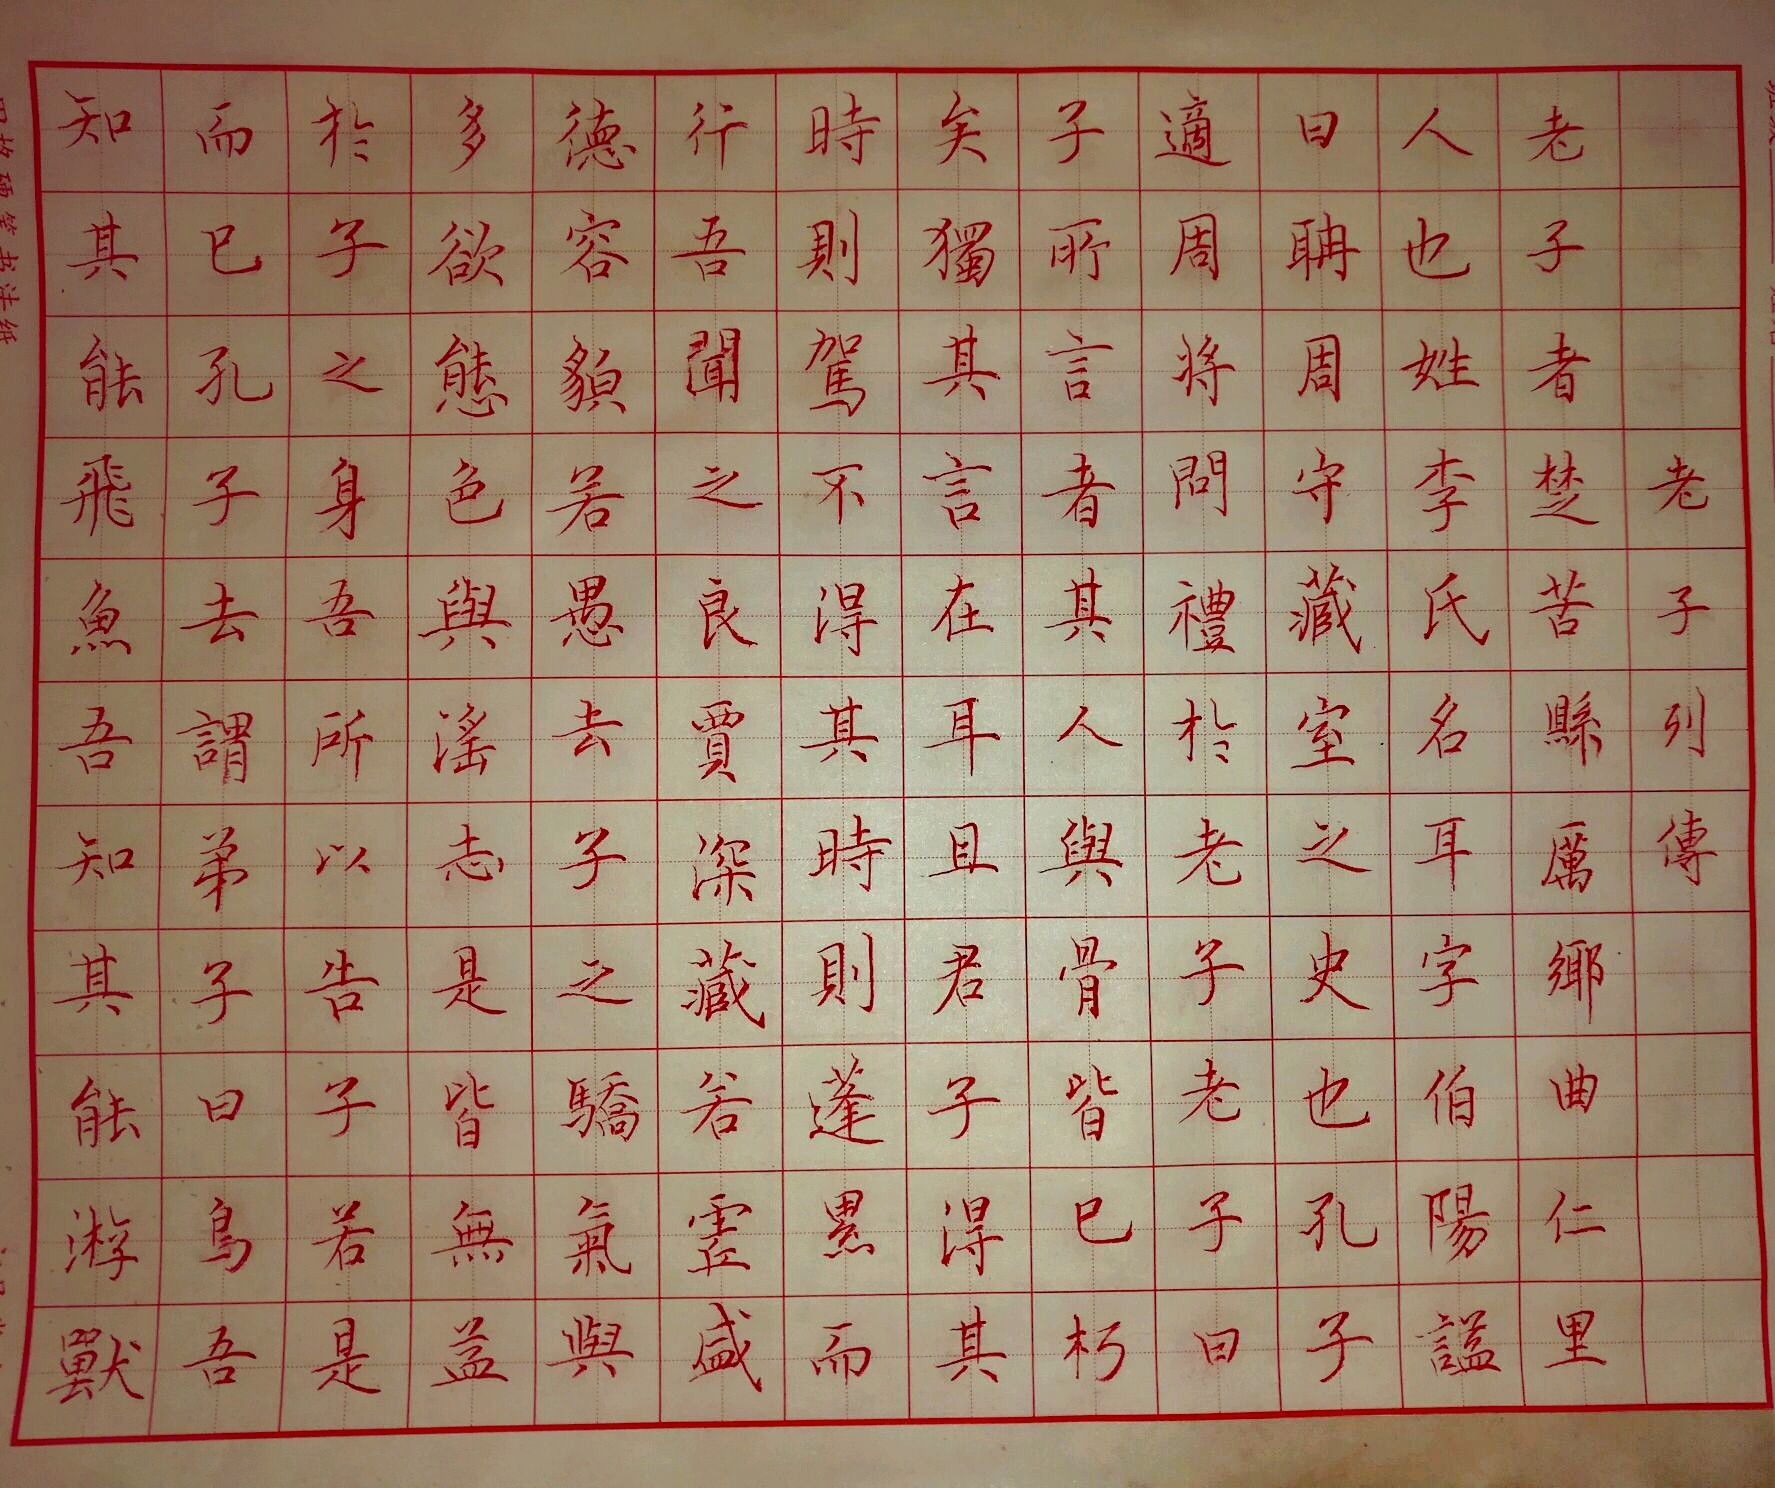 老子列傳
老子者楚苦縣厲鄉曲仁里
人也姓李氏名耳字伯陽謚
曰聃周守藏室之史也孔子
適周將問禮於老子老子曰
子所言者其人與骨皆已朽
矣獨其言在耳且君子得其
時則駕不得其時則蓬累而
行吾聞之良賈深藏若虛盛
德容貌若愚去子之驕氣與
多欲態色與淫志是皆無益
於子之身吾所以告子若是
而已孔子去謂弟子曰鳥吾
知其能飛魚吾知其能游獸
四格硬笔书法纸